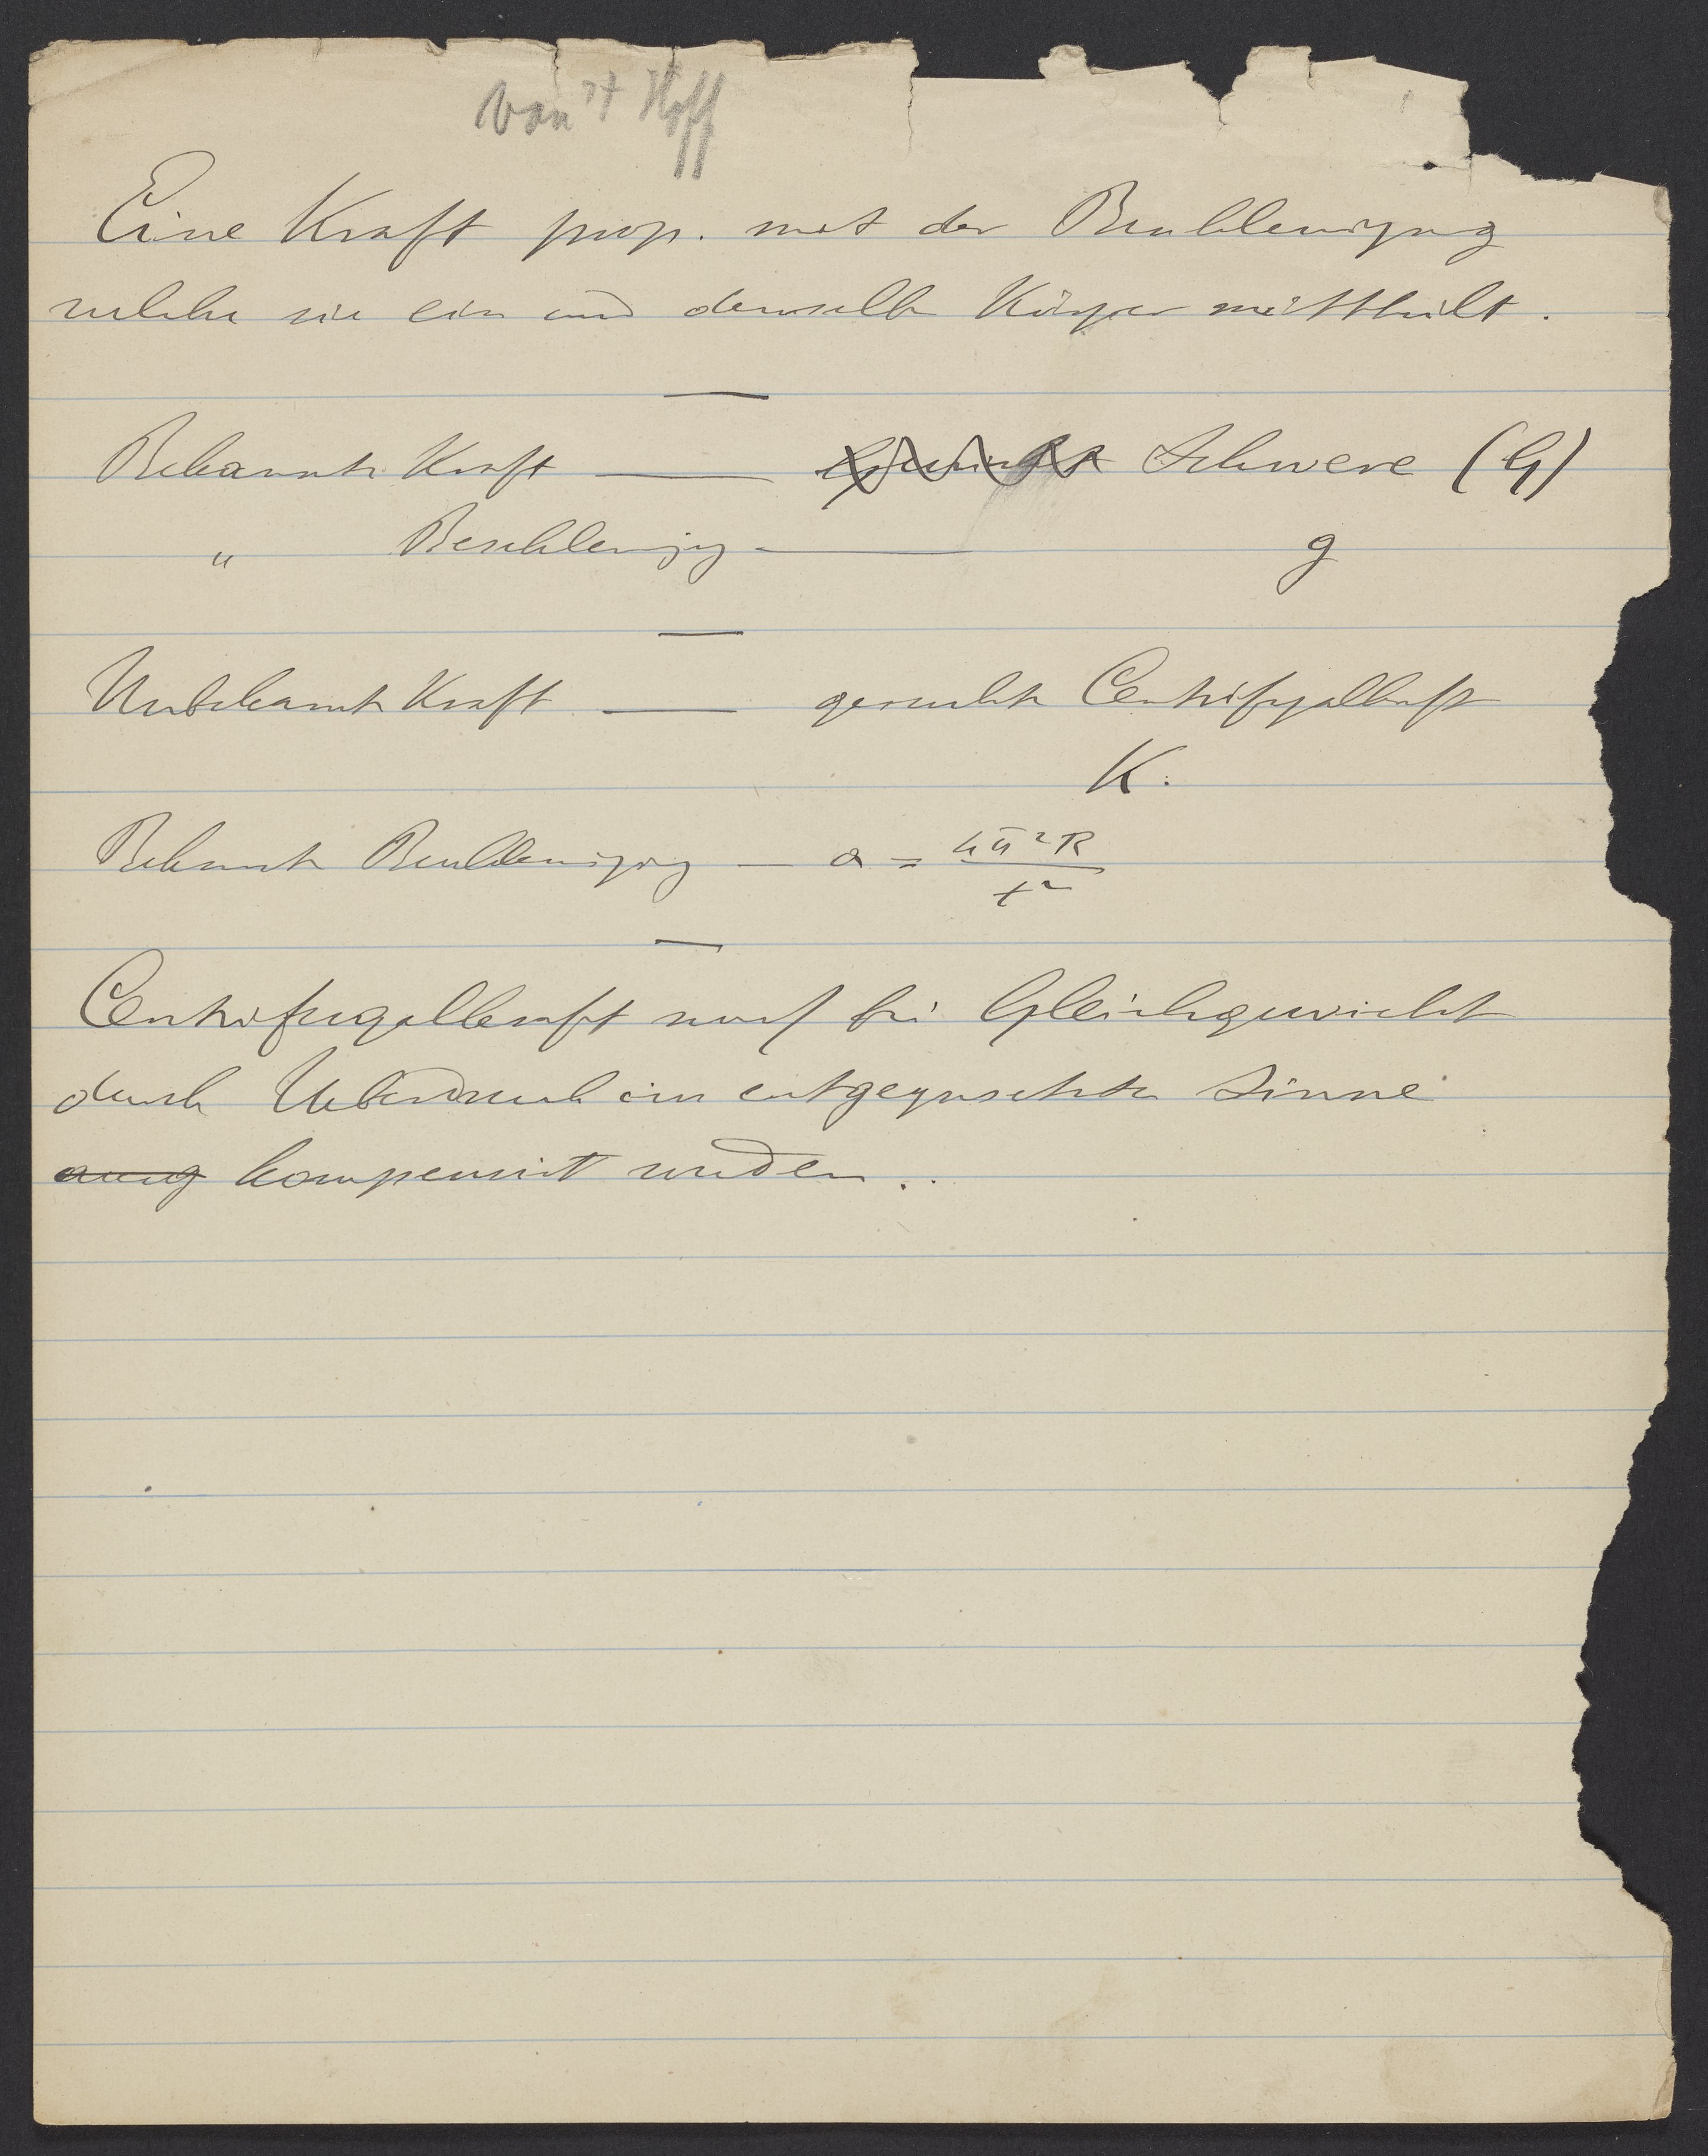 van 't Hoff
Eine Kraft prop. mit der Beschleunigung
welche sie ein und demselben Körper mittheilt.
Bekannte Kraft — Gewicht Schwere (G)
" Beschleunigung — g
Unbekannte Kraft — gesuchte Centrifugalkraft
K.
Bekannte Beschleunigung — a = 4π²R / t²
Centrifugalkraft muss bei Gleichgewicht
durch Ueberdruck im entgegengesetzten Sinne
kompensirt werden.